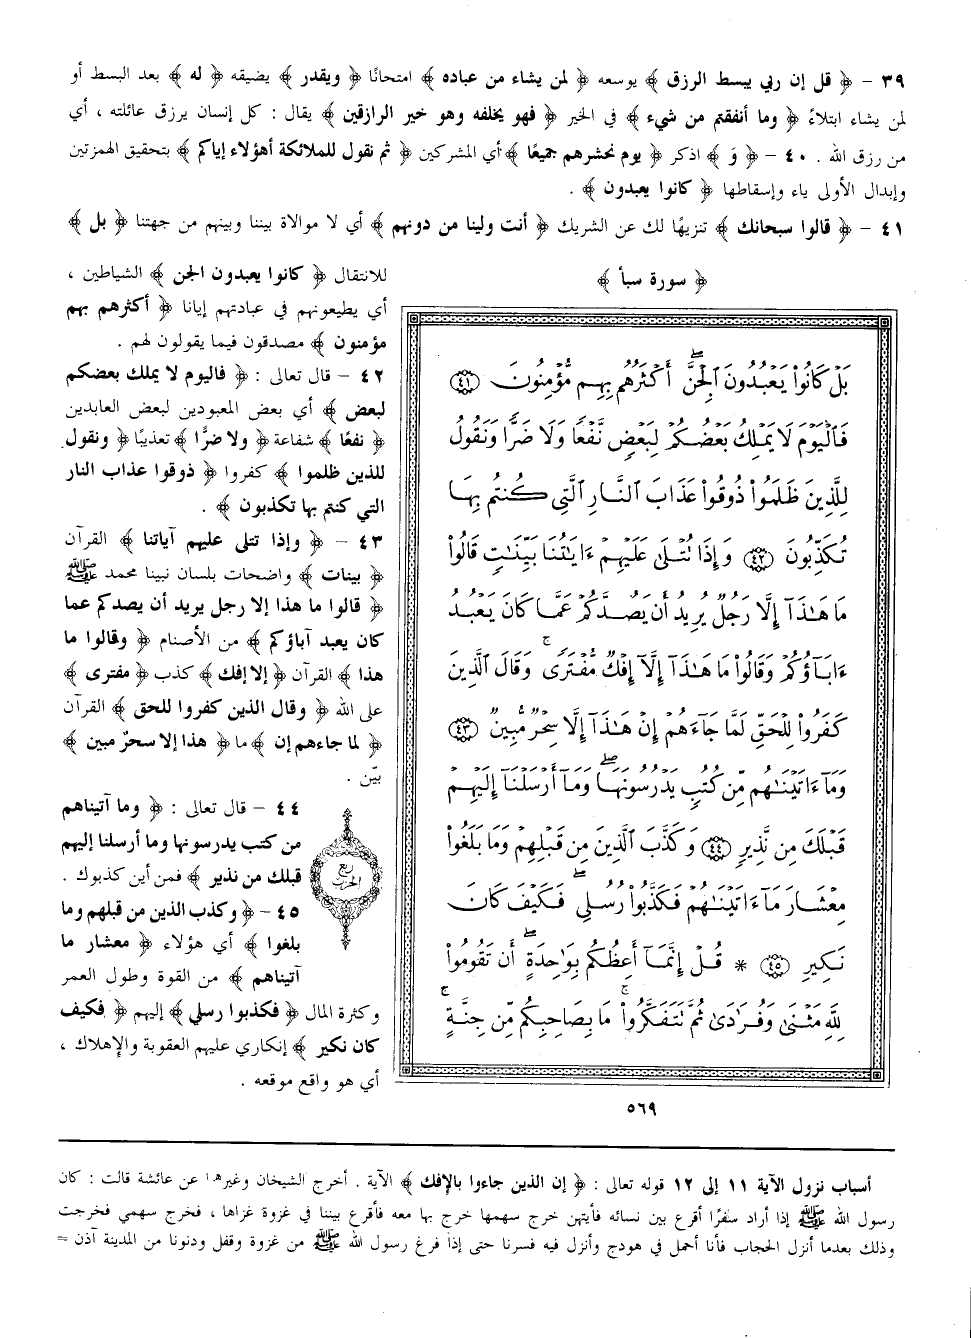 ٣٩ – ﴿ قل إن ربي يبسط الرزق ﴾ يوسعه ﴿ لمن يشاء من عباده ﴾ امتحانًا ﴿ ويقدر ﴾ يضيقه ﴿ له ﴾ بعد البسط أو
لمن يشاء ابتلاءً ﴿ وما أنفقتم من شيء ﴾ في الخير ﴿ فهو يخلفه وهو خير الرازقين ﴾ يقال : كل إنسان يرزق عائلته ، أي
من رزق الله . ٤٠ – ﴿ وَ ﴾ اذكر ﴿ يوم نحشرهم جميعًا ﴾ أي المشركين ﴿ ثم نقول للملائكة أهؤلاء إياكم ﴾ بتحقيق الهمزتين
وإبدال الأولى ياء وإسقاطها ﴿ كانوا يعبدون ﴾ .
٤١ – ﴿ قالوا سبحانك ﴾ تنزيهًا لك عن الشريك ﴿ أنت ولينا من دونهم ﴾ أي لا موالاة بيننا وبينهم من جهتنا ﴿ بل ﴾
للانتقال ﴿ كانوا يعبدون الجن ﴾ الشياطين ،
أي يطيعونهم في عبادتهم إيانا ﴿ أكثرهم بهم
مؤمنون ﴾ مصدقون فيما يقولون لهم .
٤٢ – قال تعالى : ﴿ فاليوم لا يملك بعضكم
لبعض ﴾ أي بعض المعبودين لبعض العابدين
﴿ نفعًا ﴾ شفاعة ﴿ ولا ضرًّا ﴾ تعذيبًا ﴿ ونقول
للذين ظلموا ﴾ كفروا ﴿ ذوقوا عذاب النار
التي كنتم بها تكذبون ﴾ .
٤٣ – ﴿ وإذا تتلى عليهم آياتنا ﴾ القرآن
﴿ بينات ﴾ واضحات بلسان نبينا محمد ﷺ
﴿ قالوا ما هذا إلا رجل يريد أن يصدكم عما
كان يعبد آباؤكم ﴾ من الأصنام ﴿ وقالوا ما
هذا ﴾ القرآن ﴿ إلا إفك ﴾ كذب ﴿ مفترى ﴾
على الله ﴿ وقال الذين كفروا للحق ﴾ القرآن
﴿ لما جاءهم إن ﴾ ما ﴿ هذا إلا سحرٌ مبين ﴾
بيّن .
٤٤ – قال تعالى : ﴿ وما آتيناهم
من كتب يدرسونها وما أرسلنا إليهم
قبلك من نذير ﴾ فمن أين كذبوك .
٤٥ – ﴿ وكذب الذين من قبلهم وما
بلغوا ﴾ أي هؤلاء ﴿ معشار ما
آتيناهم ﴾ من القوة وطول العمر
وكثرة المال ﴿ فكذبوا رسلي ﴾ إليهم ﴿ فكيف
كان نكير ﴾ إنكاري عليهم العقوبة والإهلاك ،
أي هو واقع موقعه .
ربع
الحزب
﴿ سورة سبأ ﴾
بَلْ كَانُوا۟ يَعْبُدُونَ ٱلْجِنَّ ۖ أَكْثَرُهُم بِهِم مُّؤْمِنُونَ ٤١
فَٱلْيَوْمَ لَا يَمْلِكُ بَعْضُكُمْ لِبَعْضٍ نَّفْعًا وَلَا ضَرًّا وَنَقُولُ
لِلَّذِينَ ظَلَمُوا۟ ذُوقُوا۟ عَذَابَ ٱلنَّارِ ٱلَّتِى كُنتُم بِهَا
تُكَذِّبُونَ ٤٢ وَإِذَا تُتْلَىٰ عَلَيْهِمْ ءَايَٰتُنَا بَيِّنَٰتٍ قَالُوا۟
مَا هَٰذَآ إِلَّا رَجُلٌ يُرِيدُ أَن يَصُدَّكُمْ عَمَّا كَانَ يَعْبُدُ
ءَابَآؤُكُمْ وَقَالُوا۟ مَا هَٰذَآ إِلَّآ إِفْكٌ مُّفْتَرًى ۚ وَقَالَ ٱلَّذِينَ
كَفَرُوا۟ لِلْحَقِّ لَمَّا جَآءَهُمْ إِنْ هَٰذَآ إِلَّا سِحْرٌ مُّبِينٌ ٤٣
وَمَآ ءَاتَيْنَٰهُم مِّن كُتُبٍ يَدْرُسُونَهَا ۖ وَمَآ أَرْسَلْنَآ إِلَيْهِمْ
قَبْلَكَ مِن نَّذِيرٍ ٤٤ وَكَذَّبَ ٱلَّذِينَ مِن قَبْلِهِمْ وَمَا بَلَغُوا۟
مِعْشَارَ مَآ ءَاتَيْنَٰهُمْ فَكَذَّبُوا۟ رُسُلِى ۖ فَكَيْفَ كَانَ
نَكِيرِ ٤٥ * قُلْ إِنَّمَآ أَعِظُكُم بِوَٰحِدَةٍ ۖ أَن تَقُومُوا۟
لِلَّهِ مَثْنَىٰ وَفُرَٰدَىٰ ثُمَّ تَتَفَكَّرُوا۟ ۚ مَا بِصَاحِبِكُم مِّن جِنَّةٍ ۚ
٥٦٩
أسباب نزول الآية ١١ إلى ١٢ قوله تعالى : ﴿ إن الذين جاءوا بالإفك ﴾ الآية . أخرج الشيخان وغيرهما عن عائشة قالت : كان
رسول الله ﷺ إذا أراد سفرًا أقرع بين نسائه فأيتهن خرج سهمها خرج بها معه فأقرع بيننا في غزوة غزاها ، فخرج سهمي فخرجت
وذلك بعدما أنزل الحجاب فأنا أحمل في هودج وأنزل فيه فسرنا حتى إذا فرغ رسول الله ﷺ من غزوة وقفل ودنونا من المدينة آذن =